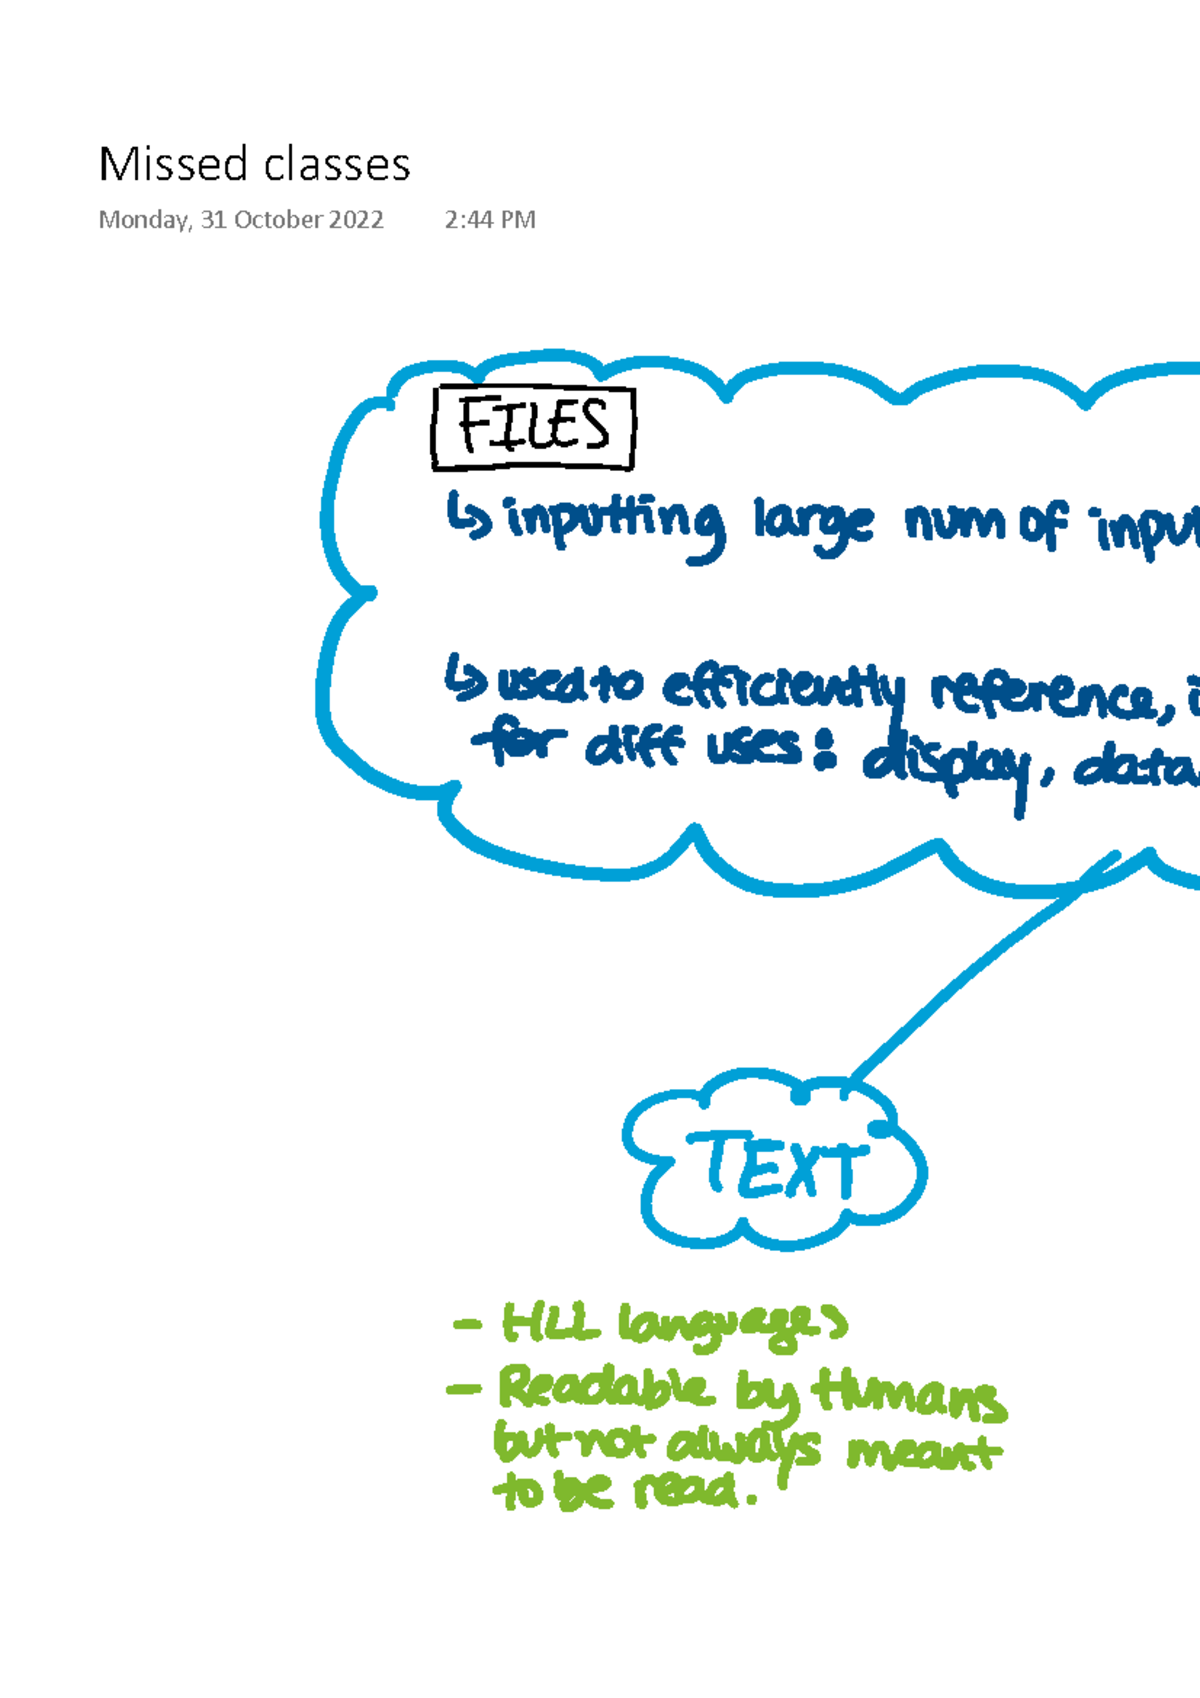 Missed classes
Monday, 31 October 2022 2:44 PM
FILES
↳ inputting large num of inpu
↳ used to efficiently reference, i
for diff uses: display, data
TEXT
- HLL languages
- Readable by Humans
but not always meant
to be read.